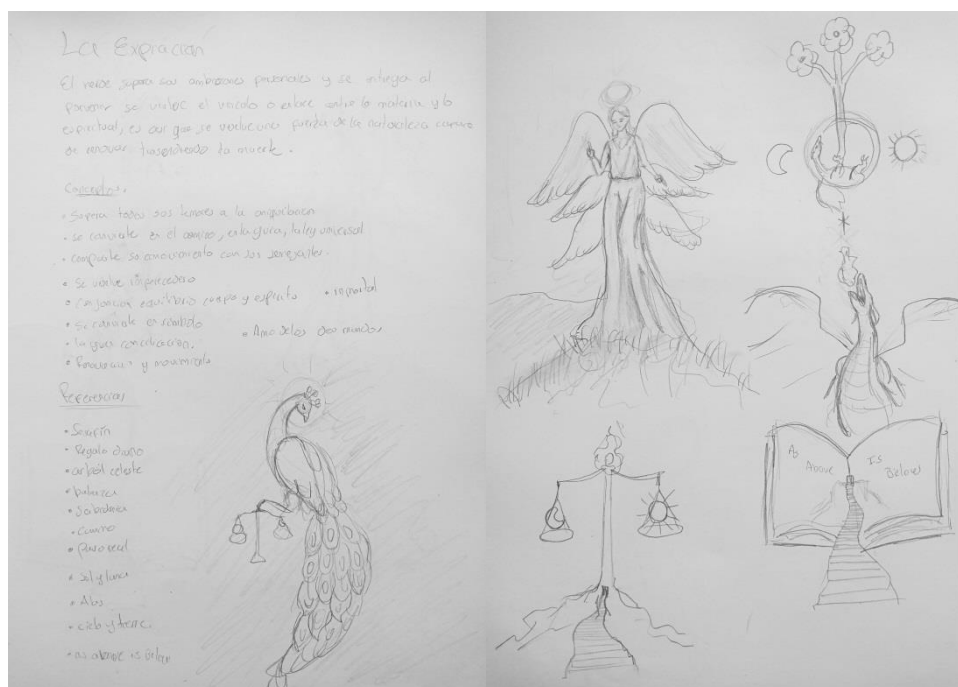 La Expiración
El monje supera sus ambiciones personales y se integra al
porvenir se vuelve el vinculo o enlace entre lo material y lo
espiritual, es así que se vuelve una fuerza de la naturaleza
de trascendiendo la muerte.
Conceptos.
• Supera todos sus temores a la
• se convierte en el camino, en la guía, la ley universal
• comparte su conocimiento con sus semejantes.
• Se vuelve imperecedero
• Conjunción equilibrio cuerpo y espíritu • inmortal
• Se convierte en símbolo
• la gran conciliación. • Amo de los dos mundos
• Frecuencia y movimiento
Referencias
• Serafín
• Regalo divino
• arbol celeste
• balanza
• Sabiduria
• Camino
• Pavo real
• sol y luna
• Alas
• cielo y tierra.
• as above is below
As Above Is Below